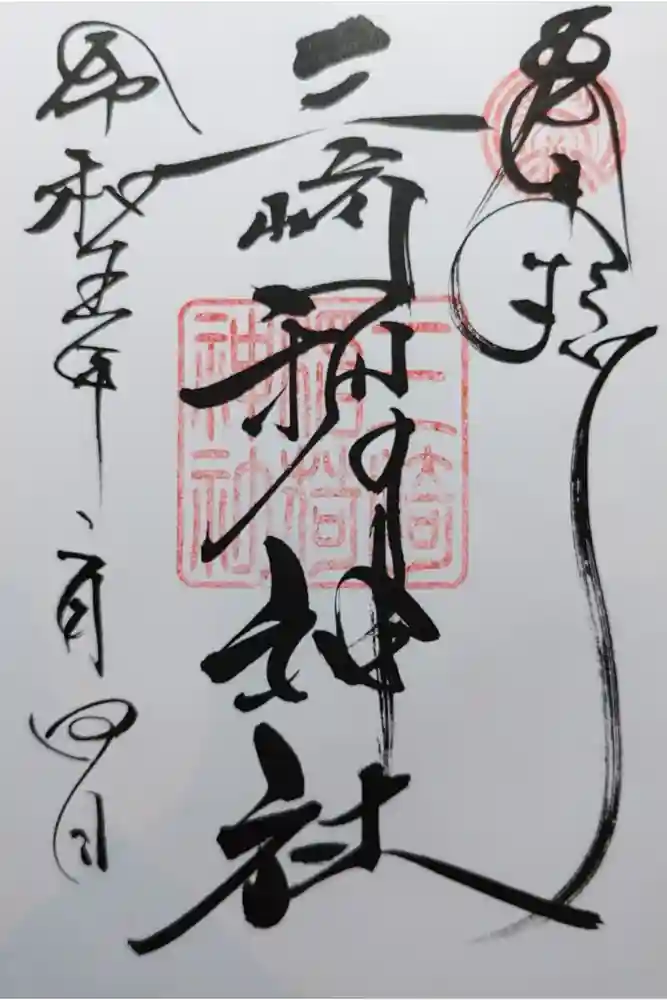 奉拝
三崎稲荷神社
令和五年二月四日
三崎
稲荷
神社